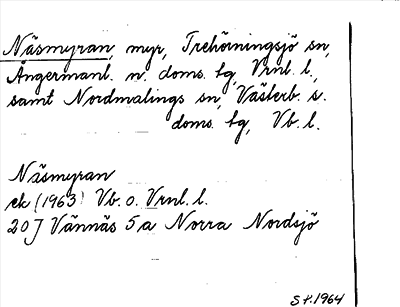 Näsmyran, myr, Trehörningsjö sn,
Ångermanl. n. doms. tg, Vrnl. l.,
samt Nordmalings sn, Västerb. s.
doms. tg, Vb. l.
Näsmyran
ek (1963) Vb. o. Vrnl. l.
20J Vännäs 5a Norra Nordsjö
St. 1964